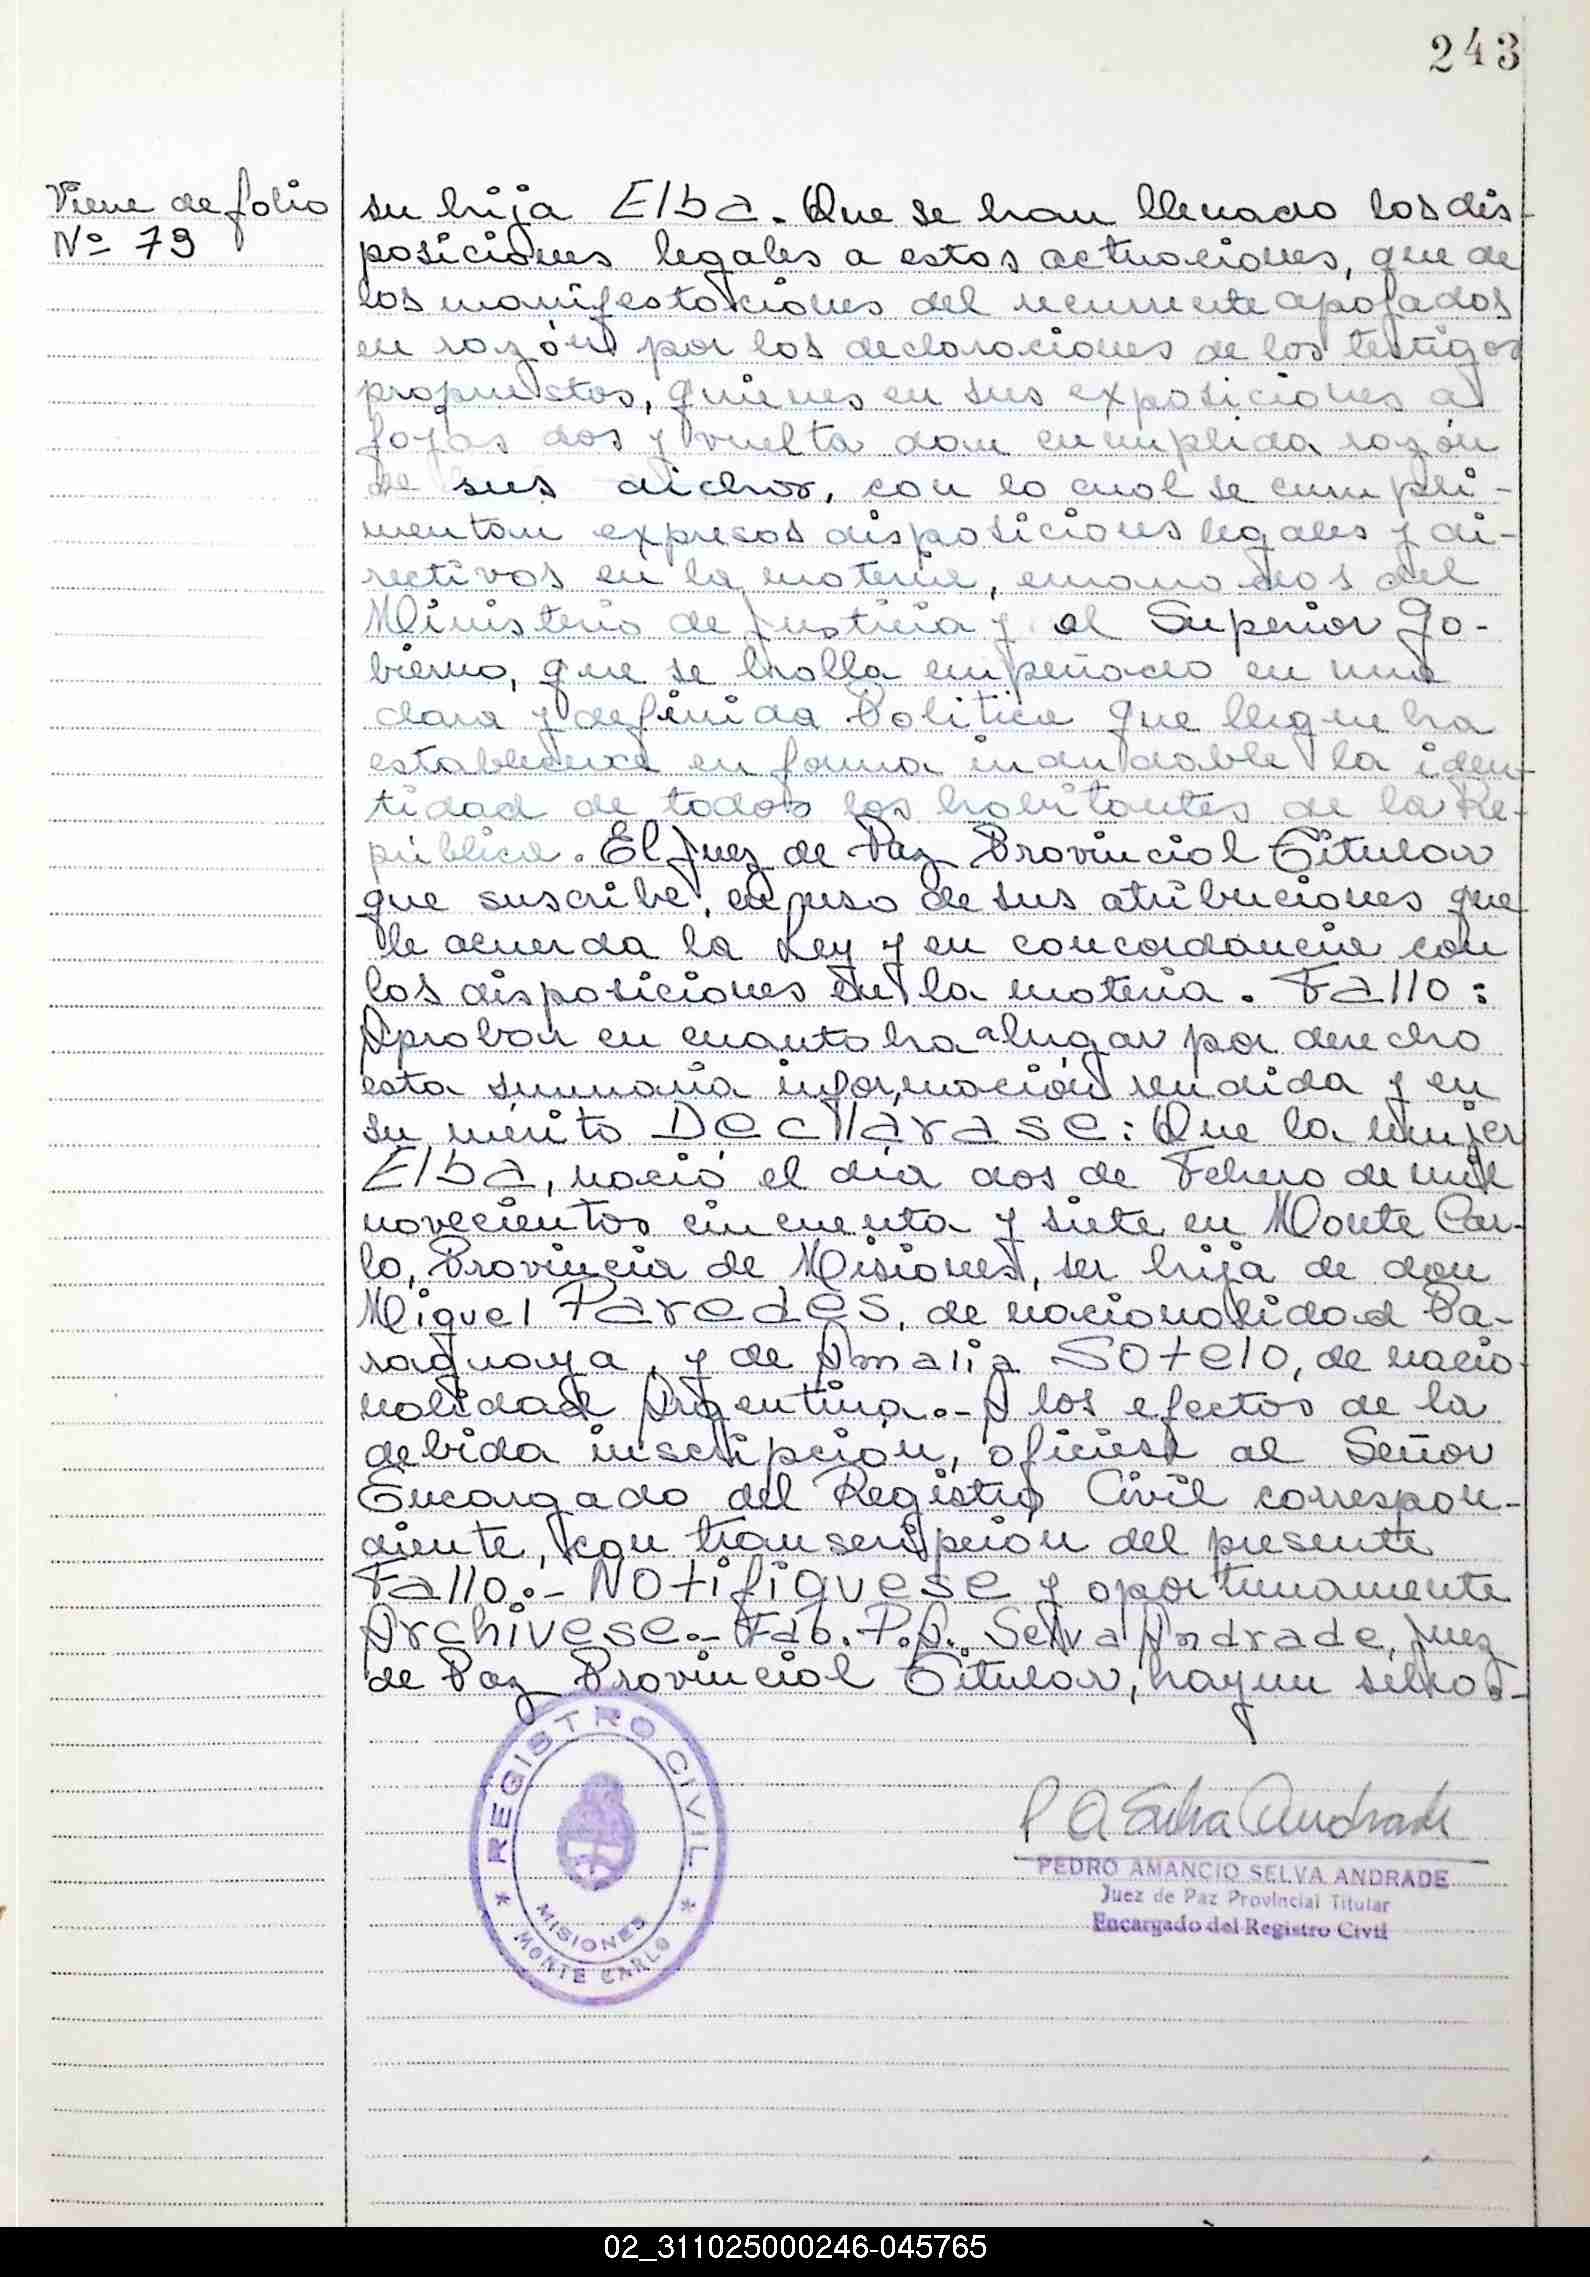 243
Viene de folio
Nº 79
su hija Elba. Que se han llenado los dis-
posiciones legales a estos actuaciones, que de
los manifestaciones del recurrente apoyados
en razón por los declaraciones de los testigos
propuestos, quienes en sus exposiciones a
fojas dos y vuelta dan cumplida razón
de sus dichos, con lo cual se cumpli-
mentan expresos disposiciones legales y di-
rectivos en la materia, emanados del
Ministerio de Justicia y el Superior Go-
bierno, que se halla empeñado en una
clara y definida Politica que llegue ha
establecerce en forma indudable la iden-
tidad de todos los habitantes de la Re-
pública. El Juez de Paz Provincial Titular
que suscribe, en uso de sus atribuciones que
le acuerda la Ley y en concordancia con
los disposiciones en la materia. Fallo:
Aprobar en cuanto ha a lugar por derecho
esta sumaria información rendida y en
su mérito Decllarase: Que la mujer
Elba, nació el día dos de Febrero de mil
novecientos cincuenta y siete en Monte Car-
lo, Provincia de Misiones, ser hija de don
Miguel Paredes, de nacionalidad Pa-
raguaya, y de Amalia Sotelo, de nacio-
nalidad Argentina.- A los efectos de la
debida inscripción, ofíciese al Señor
Encargado del Registro Civil correspon-
diente, con transcripción del presente
Fallo.- Notifiquese y oportunamente
Archivese.- Fdo. P.A. Selva Andrade, Juez
de Paz Provincial Titular, hay un sello.-
REGISTRO CIVIL
MISIONES
MONTE CARLO
P A Selva Andrade
PEDRO AMANCIO SELVA ANDRADE
Juez de Paz Provincial Titular
Encargado del Registro Civil
02_311025000246-045765